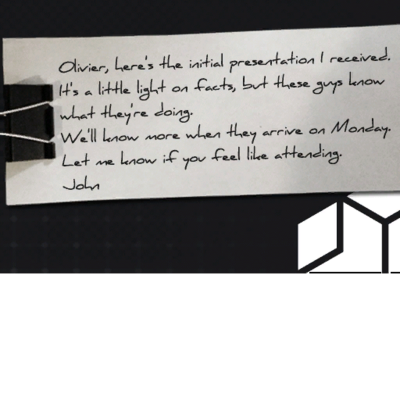 Olivier, here's the initial presentation I received.
It's a little light on facts, but these guys know
what they're doing.
We'll know more when they arrive on Monday.
Let me know if you feel like attending.
John